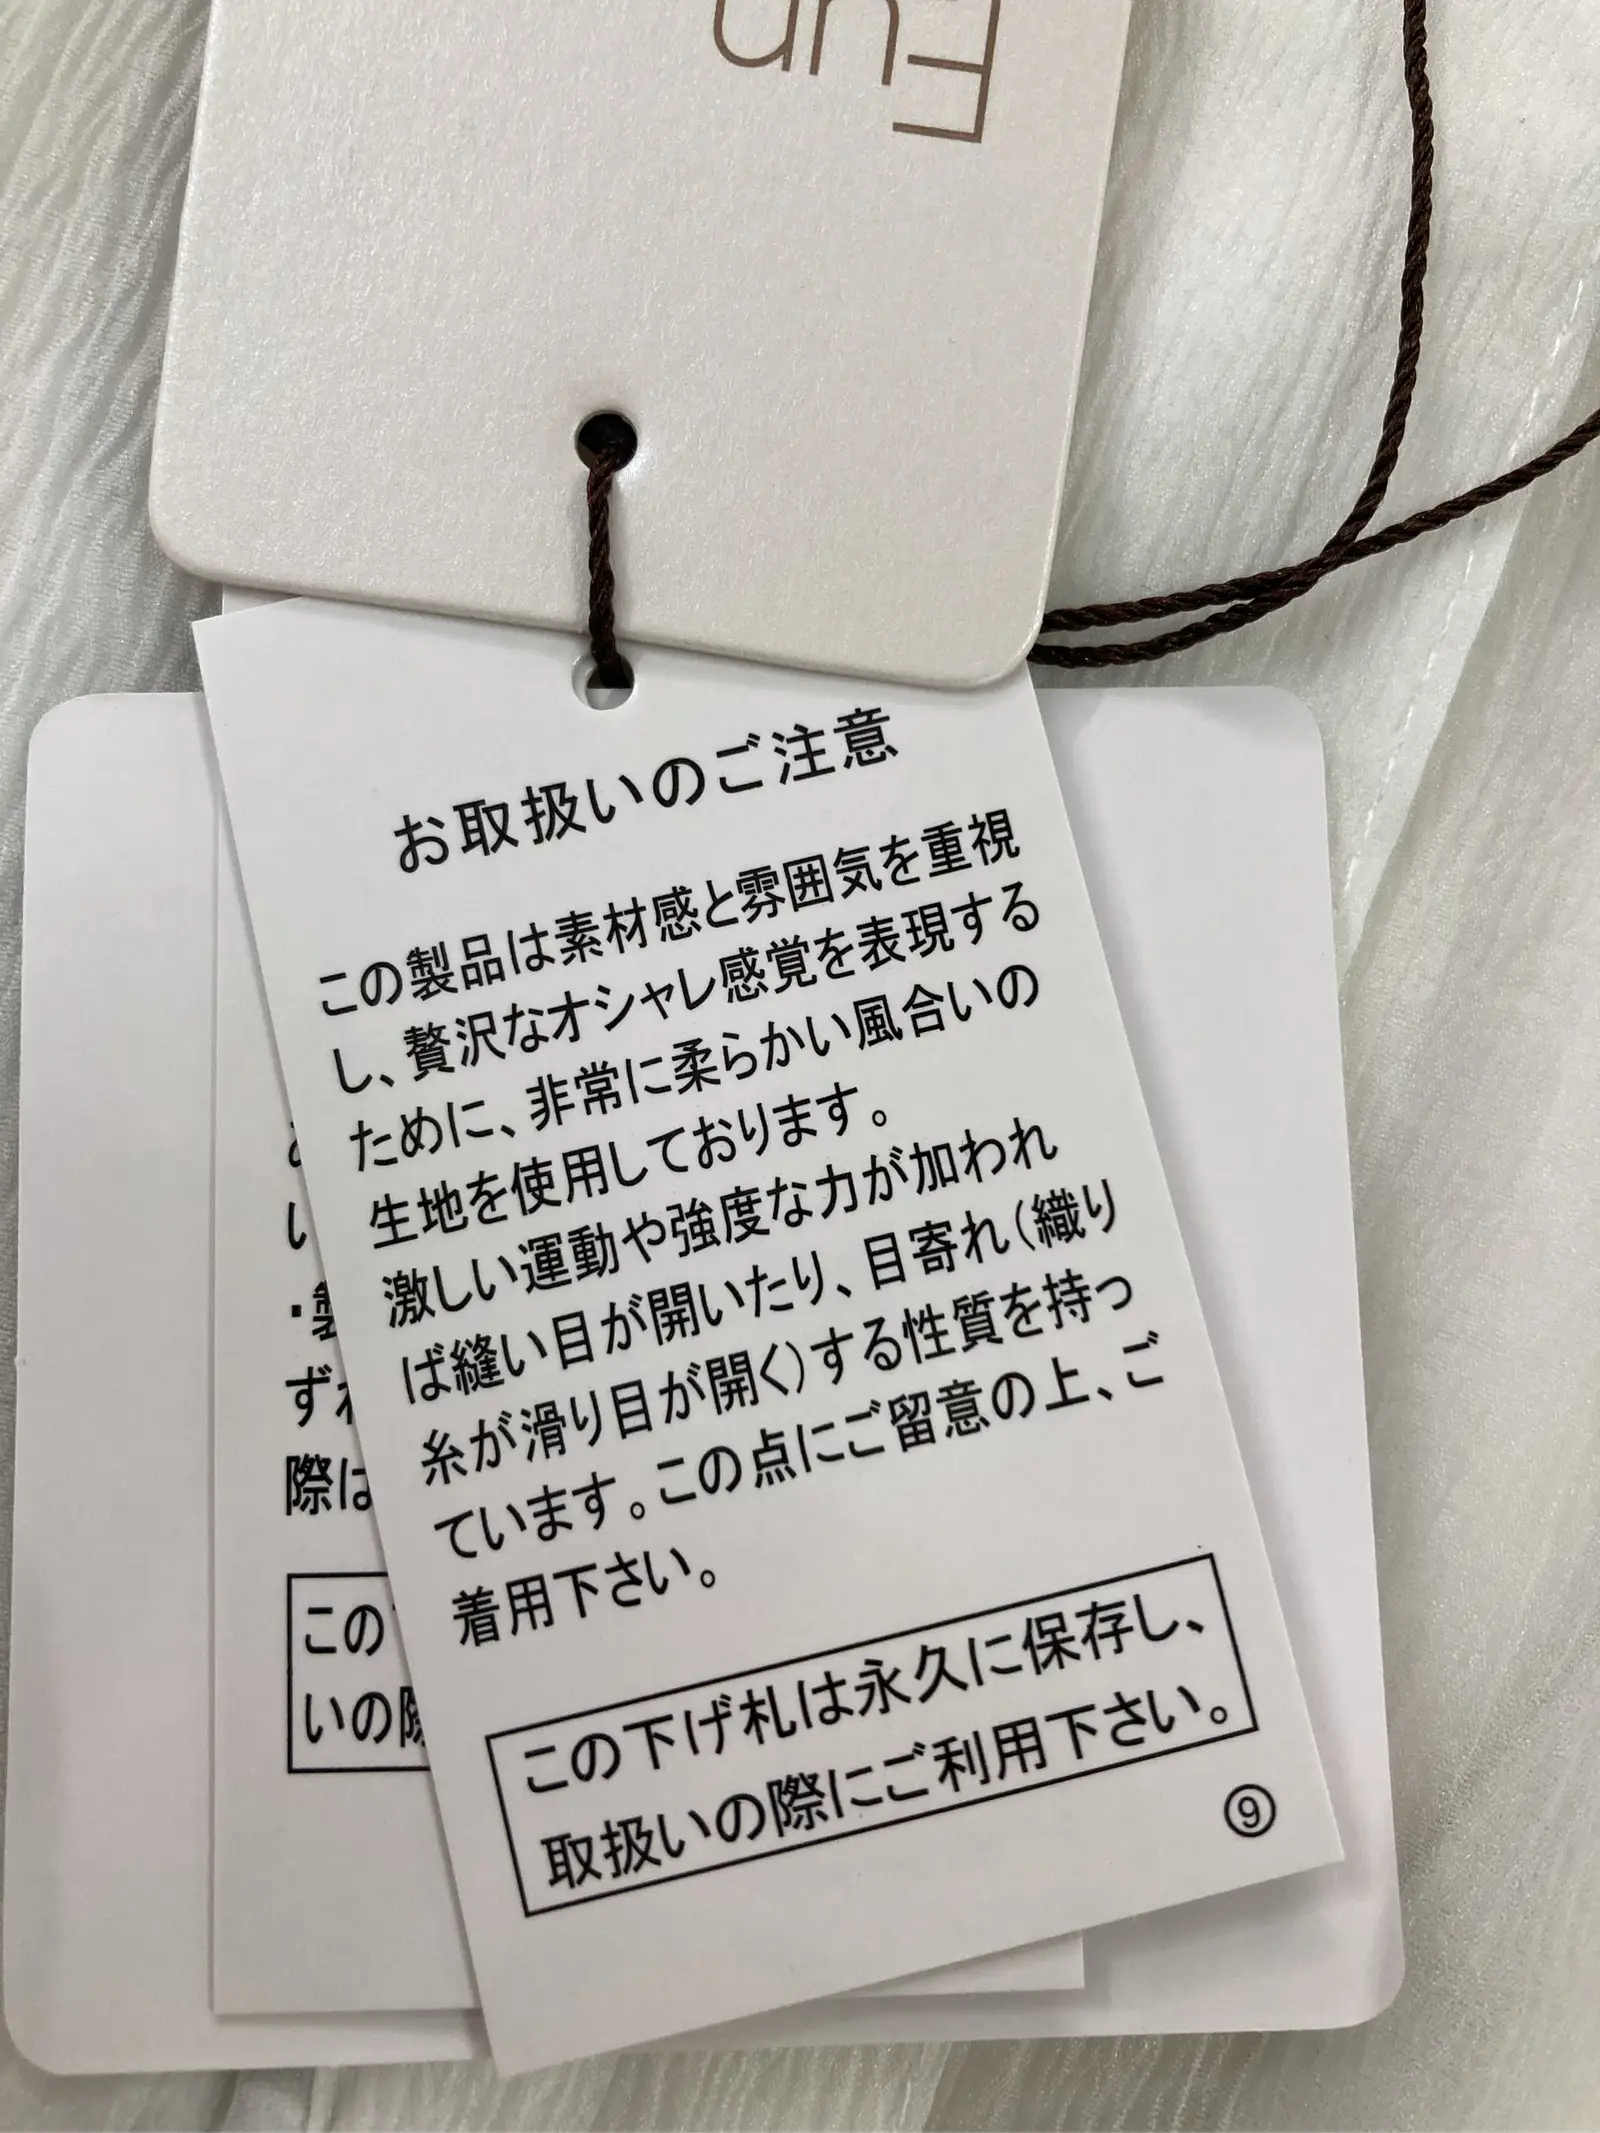 Fun
お取扱いのご注意
この製品は素材感と雰囲気を重視
し、贅沢なオシャレ感覚を表現する
ために、非常に柔らかい風合いの
生地を使用しております。
激しい運動や強度な力が加われ
ば縫い目が開いたり、目寄れ（織り
糸が滑り目が開く）する性質を持っ
ています。この点にご留意の上、ご
着用下さい。
この下げ札は永久に保存し、
取扱いの際にご利用下さい。
⑨
い
・製
ずれ
際は
この
いの際